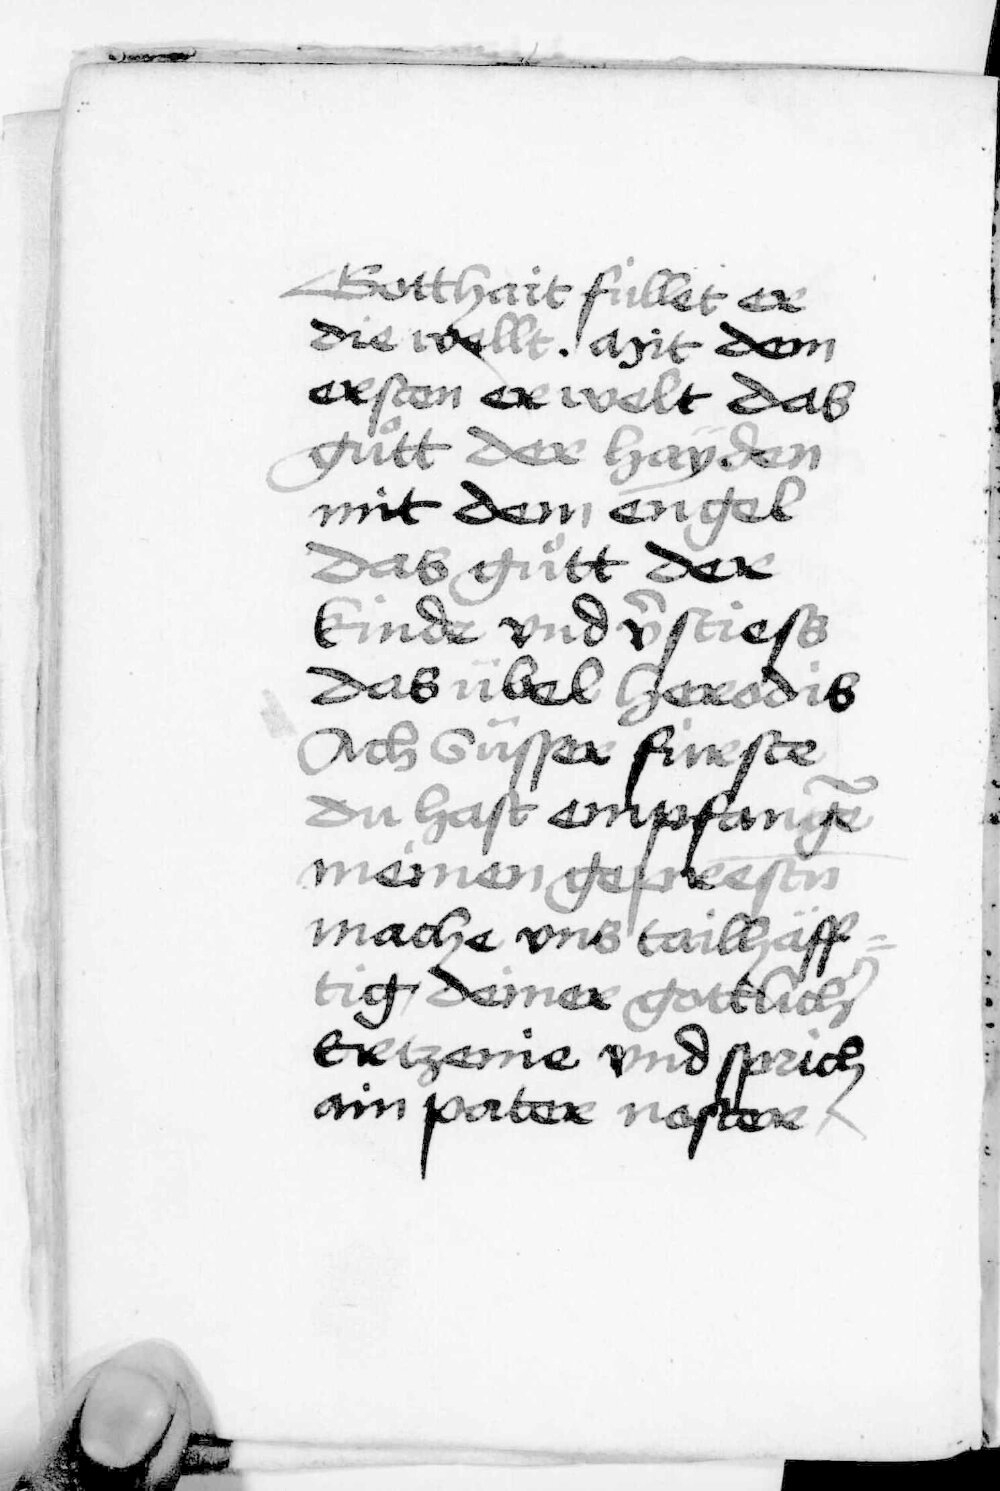 Gotthait füllet er
die wellt. Mit dem
ersten erwelt das
gůtt der haÿden
mit dem engel
das gůtt der
kinde vnd v̄stiess
das übel herodis
Ach Süsser fürste
du hast empfangē
meinen gepresten
mache vns tailhäff=
tig deiner gottlich̄
Ertzenie vnd sprich
ain pater noster